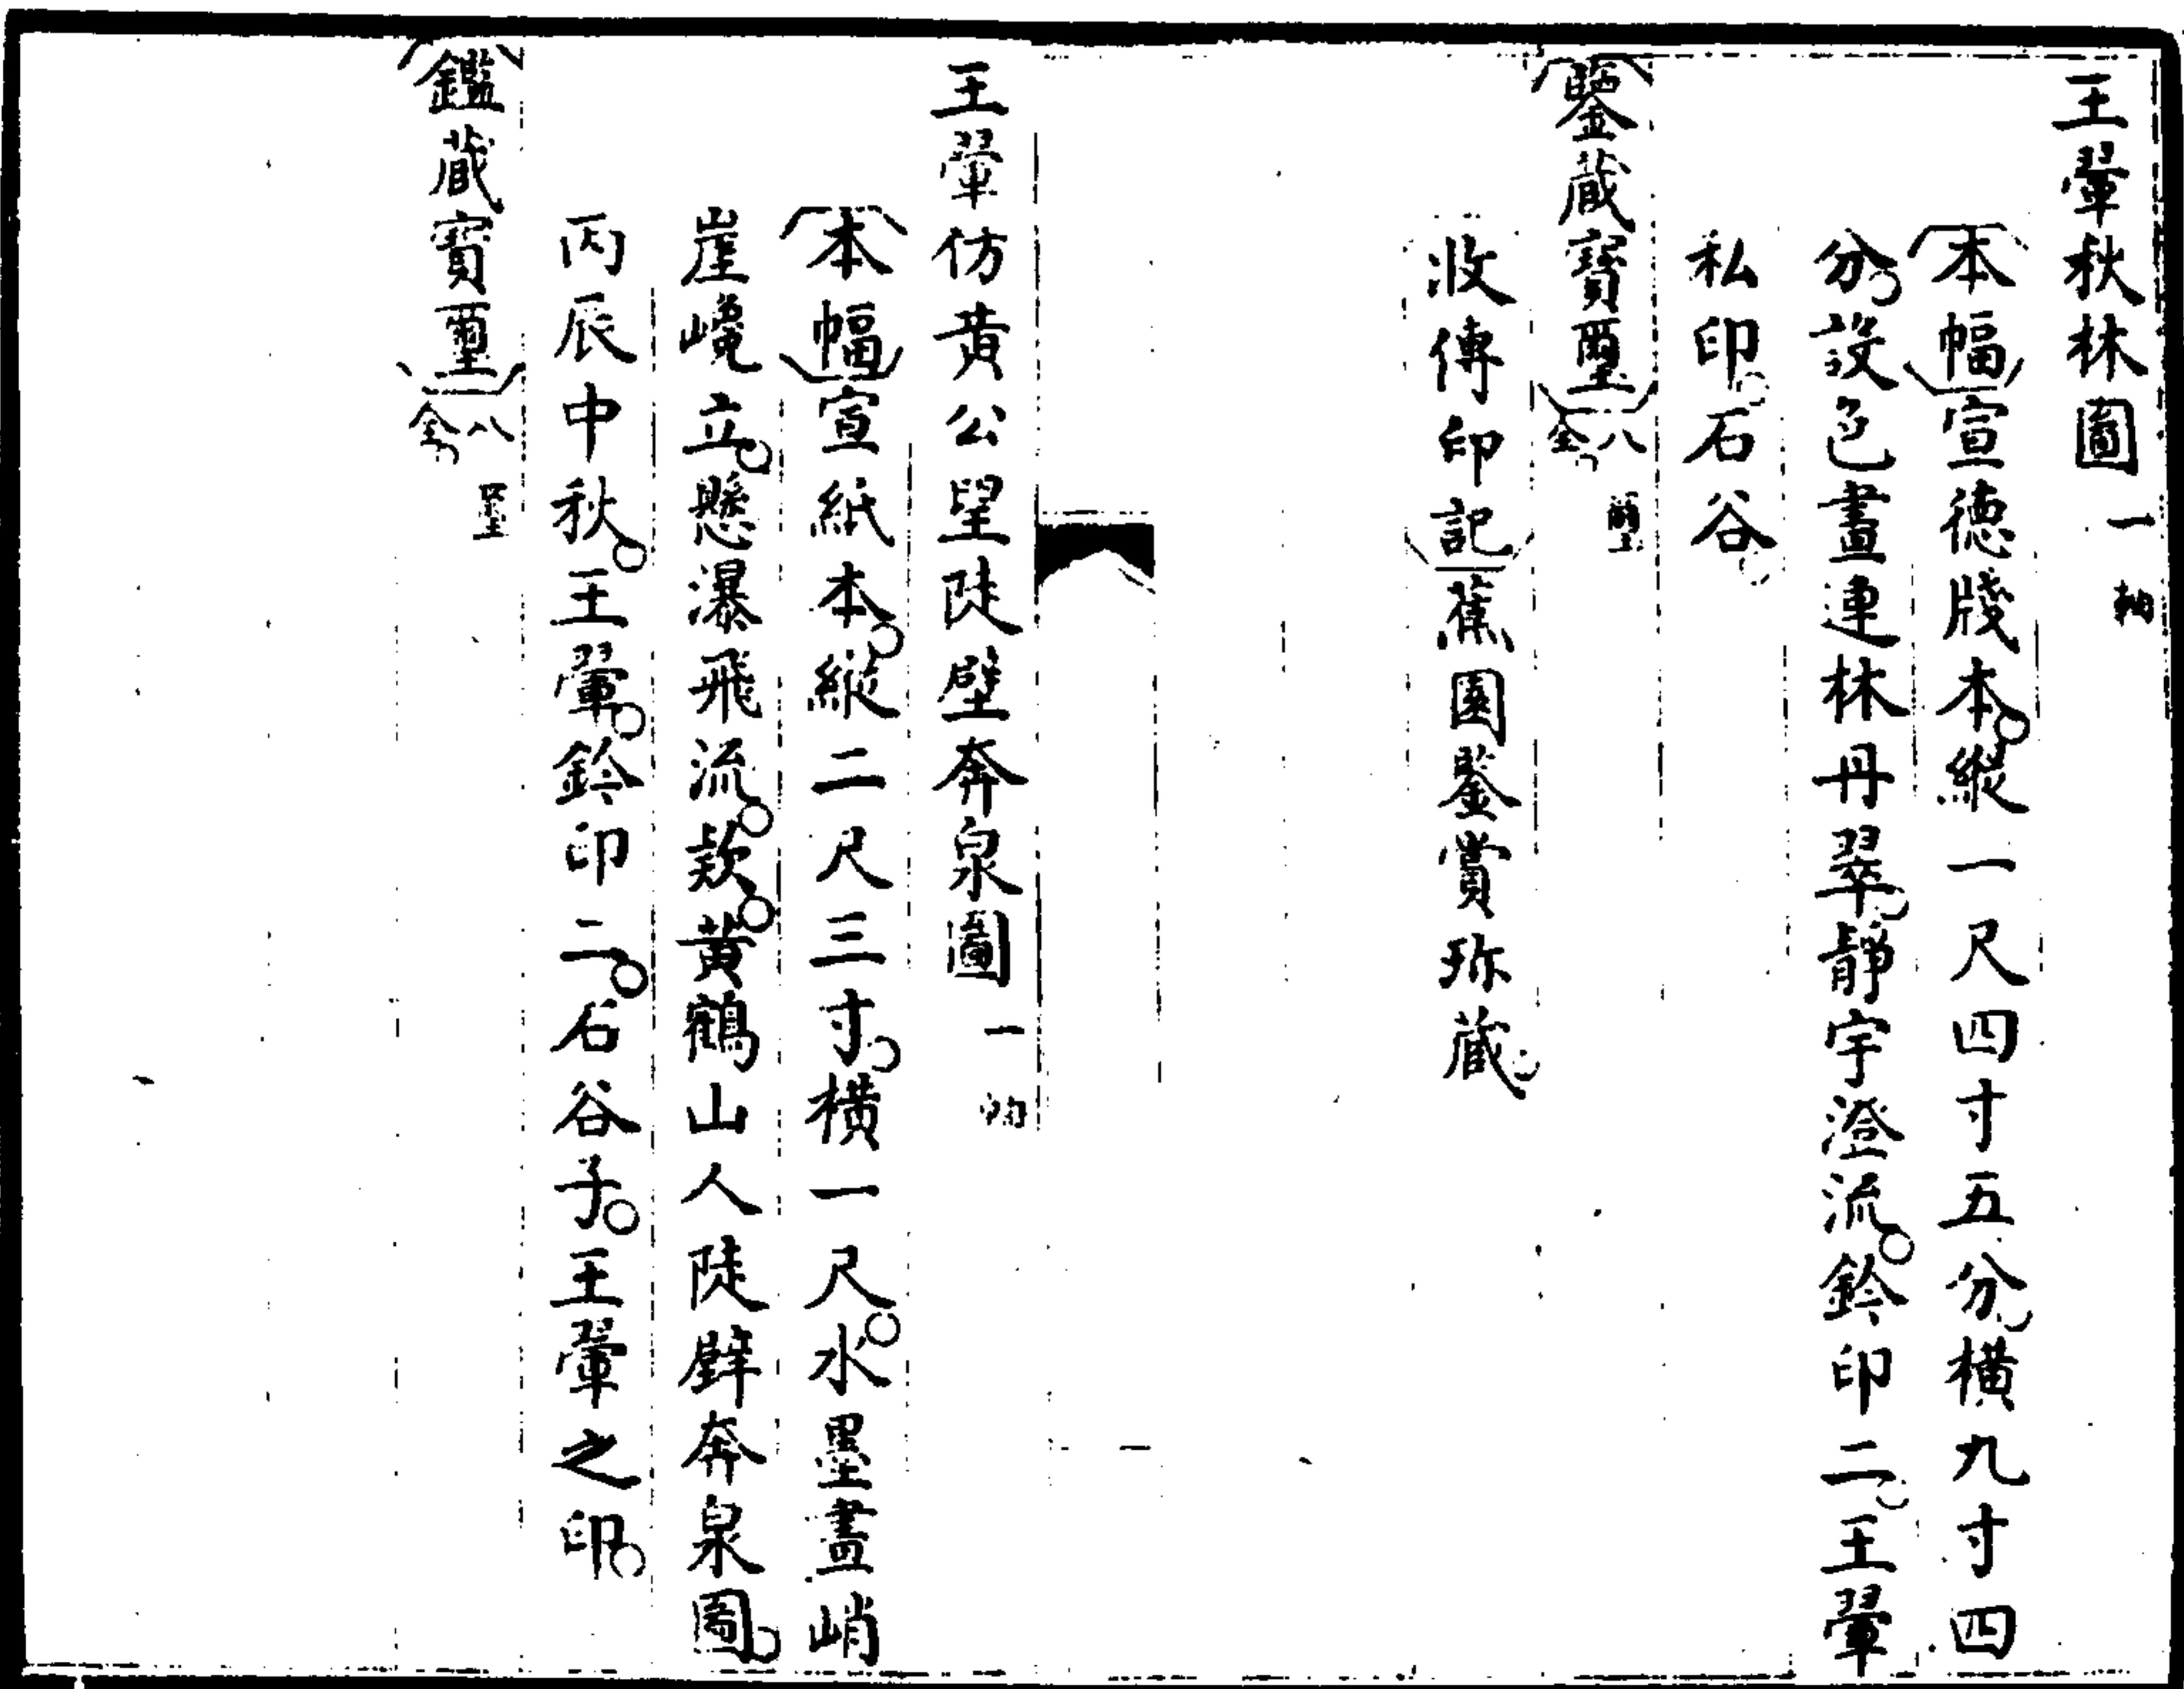 王翬秋林圖一軸
本幅宣德牋本縱一尺四寸五分橫九寸四
分設色畫連林丹翠靜宇澄流鈐印二王翬
私印石谷
鑒藏寶璽八璽全
收傳印記蕉園鑒賞珍藏
王翬仿黃公望陡壁奔泉圖一軸
本幅宣紙本縱二尺三寸橫一尺水墨畫峭
崖巉立懸瀑飛流款黃鶴山人陡壁奔泉圖
丙辰中秋王翬鈐印二石谷子王翬之印
鑑藏寶璽八璽全